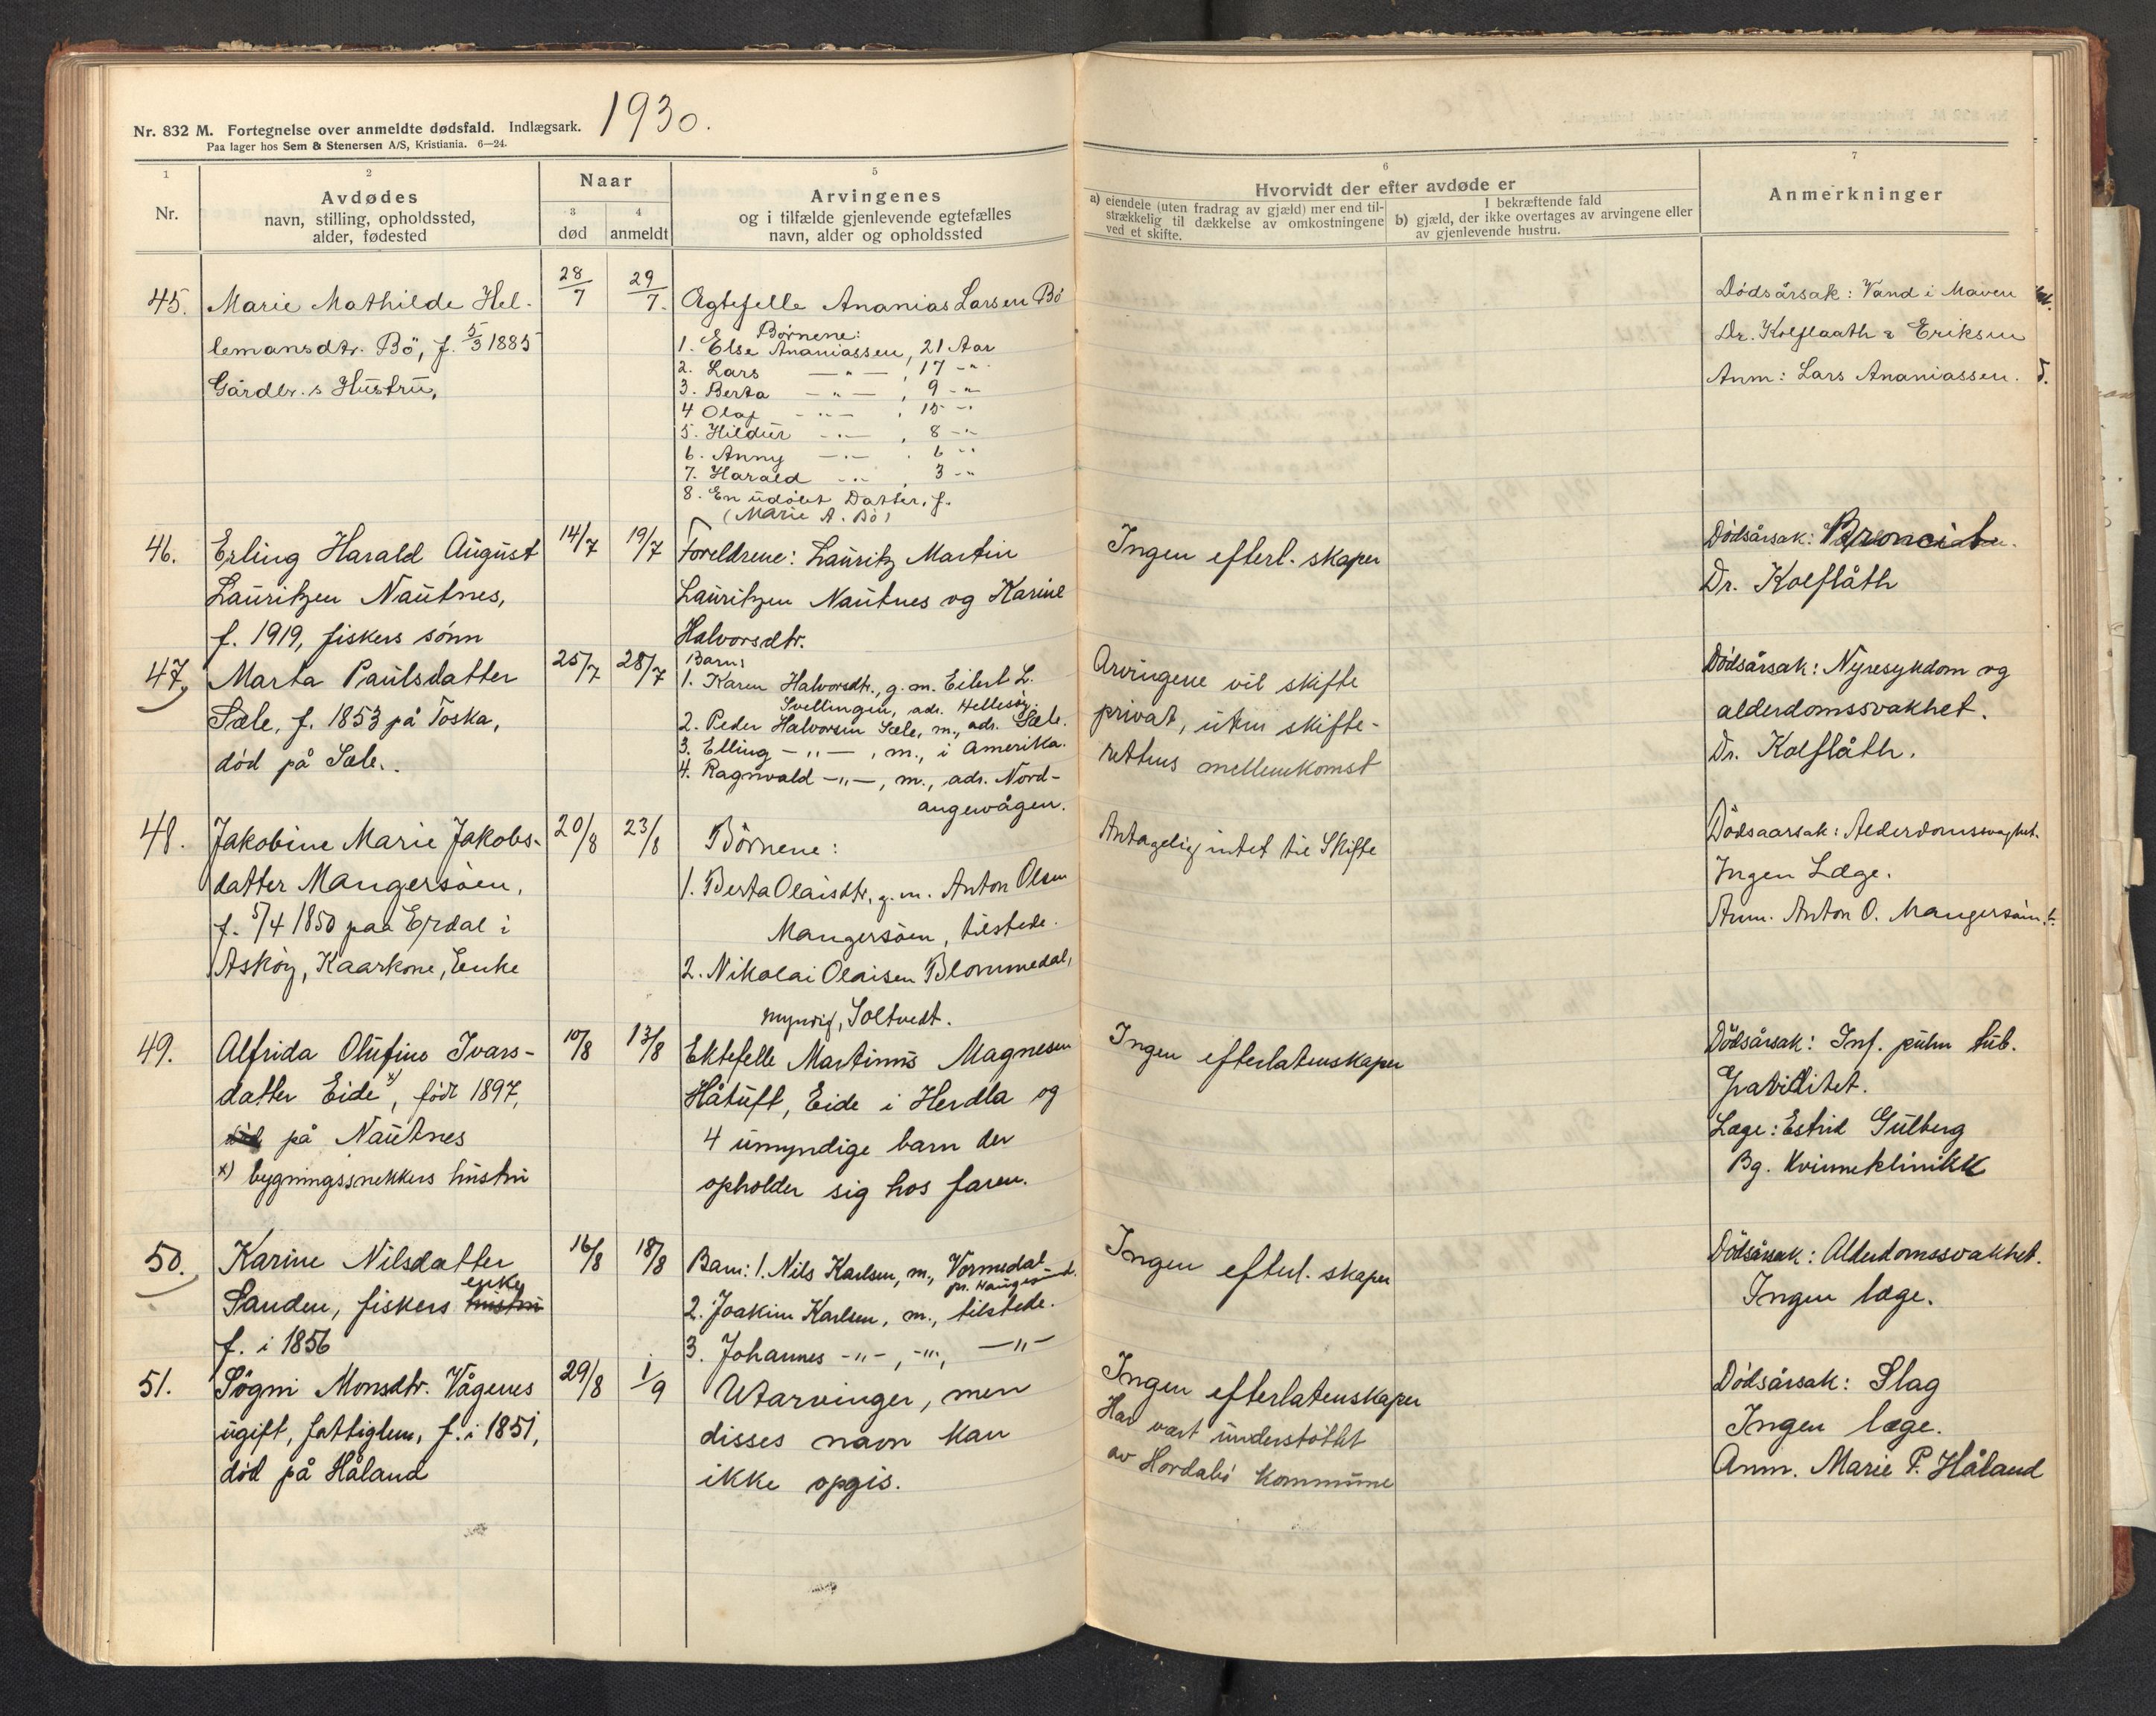 1930.
Nr. 832 M. Fortegnelse over anmeldte dødsfald. Indlægsark.
Paa lager hos Sem & Stenersen A/S, Kristiania. 6—24.
1
Nr.
2
Avdødes
navn, stilling, opholdssted,
alder, fødested
Naar
3
død
4
anmeldt
5
Arvingenes
og i tilfælde gjenlevende egtefælles
navn, alder og opholdssted
6
Hvorvidt der efter avdøde er
a) eiendele (uten fradrag av gjæld) mer end til-
strækkelig til dækkelse av omkostningene
ved et skifte.
I bekræftende fald
b) gjæld, der ikke overtages av arvingene eller
av gjenlevende hustru.
7
Anmerkninger
45. Marie Mathilde Hel-
lemansdtr. Bö, f. 5/3 1885
Gårdbr.s Hustru,
28/7
29/7.
Ægtefelle Ananias Larsen Bö
Børnene:
1. Else Ananiassen, 21 Aar
2. Lars — " — , 17 - "
3. Berta — " — , 9 - "
4 Olaf - " — , 15 - "
5. Hildur — " — , 8 - "
6. Anny — " — , 6 "
7. Harald - " , 3 - "
8. En udöbt Datter, f.
(Marie A. Bö)
Dödsårsak: Vand i Maven
Dr. Kolflaath & Eriksen
Anm: Lars Ananiassen.
46. Erling Harald August
Lauritzen Nautnes,
f. 1919, fiskers sönn
14/7
19/7
Foreldrene: Lauritz Martin
Lauritzen Nautnes og Karine
Halvorsdtr.
Ingen efterl. skaper
Dödsårsak:
Dr. Kolflåth
47, Marta Paulsdatter
Sæle, f. 1853 på Toska,
död på Sæle.
25/7
28/7
Barn:
1. Karen Halvorsdtr., g. m. Eilert L.
Svellingen, adr. Hellesöy.
2. Peder Halvorsen Sæle, m., adr. Sæle.
3. Elling — " — , m., i Amerika.
4. Ragnvald — " —, m., adr. Nord-
angervågen.
Arvingene vil skifte
privat, uten skifte-
rettens mellemkomst
Dödsårsak: Nyresykdom og
alderdomssvakhet.
Dr. Kolflåth.
48. Jakobine Marie Jakobs-
datter Mangersöen,
f. 5/4 1850 paa Erdal i
Asköy, Kaarkone, Enke
20/8
23/8
Börnene:
1. Berta Olaisdtr, g. m. Anton Olsen
Mangersöen, tilstede.
2. Nikolai Olaisen Blommedal,
myndig, Soltvedt.
Antagelig intet til Skifte
Dödsaarsak: Alderdomssvaghet.
Ingen Læge.
Anm. Anton O. Mangersöen
49. Alfrida Olufine Ivars-
datter Eide x), född 1897,
på Nautnes
x) bygningssnekkers hustru
10/8
13/8
Ektefelle Martinus Magnesen
Håtuft, Eide i Herdla og
4 umyndige barn der
opholder sig hos faren.
Ingen efterlatenskaper
Dödsårsak: Inf. pulm tub.
Graviditet.
Læge: Estrid Gulberg
Bg. Kvinneklinikk
50. Karine Nilsdatter
Sanden, fiskers hustru enke
f. i 1856
16/8
18/8
Barn: 1. Nils Karlsen, m., Vormedal
pr. Haugesund.
2. Joakim Karlsen, m., tilstede.
3. Johannes -"-, -"-, —"—
Ingen efterl. skaper
Dödsårsak: Alderdomssvakhet.
Ingen læge.
51. Sögni Monsdtr. Vågenes
ugift, fattiglem, f. i 1851,
död på Håland
29/8
1/9
Utarvinger, men
disses navn kan
ikke opgis.
Ingen efterlatenskaper
Har vært understöttet
av Hordabö kommune
Dödsårsak: Slag
Ingen læge.
Anm. Marie P. Håland